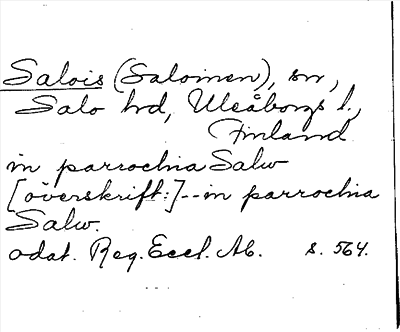 Salois (Saloinen), sn,
Salo hd, Uleåborgs l.,
Finland
in parrochia Salw
[överskrift:]--in parrochia
Salw.
odat. Reg. Eccl. Ab. s. 564.